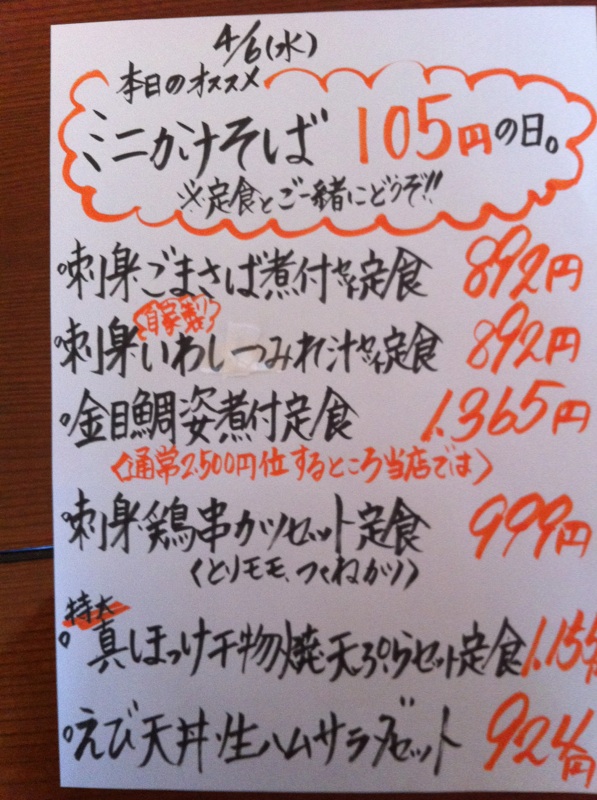 4/6(水)
本日のオススメ
ミニかけそば 105円の日。
※定食とご一緒にどうぞ!!
刺身ごまさば煮付セット定食 892円
自家製
刺身いわしつみれ汁セット定食 892円
金目鯛姿煮付定食 1.365円
〈通常2.500円位するところ当店では〉
刺身鶏串カツセット定食 999円
〈とりモモ、つくねカツ〉
特大
真ほっけ干物焼天ぷらセット定食 1.155円
えび天丼生ハムサラダセット 924円